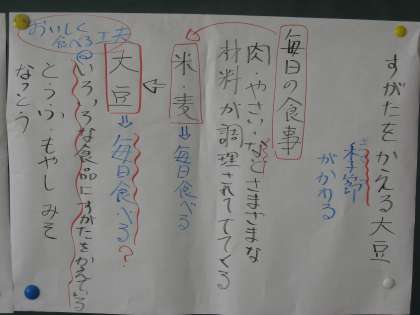 すがたをかえる大豆
きせつ
季節
がかわる
毎日の食事
肉・やさい・などさまざまな
材料が調理されてでてくる
米・麦⇒毎日食べる
大豆⇒毎日食べる?
おいしく
食べる工夫
◎いろいろな食品にすがたをかえている
とうふ・もやし みそ
なっとう